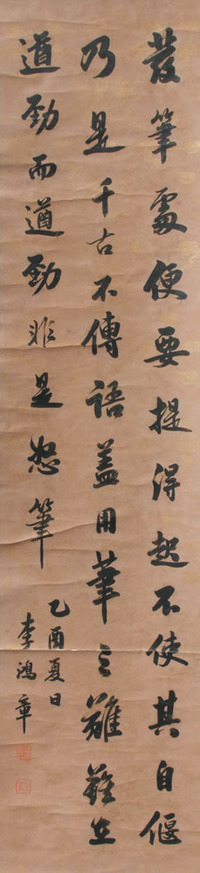 發筆處便要提得起不使其自偃
乃是千古不傳語蓋用筆之難難在
遒勁而遒勁非是怒筆
乙酉夏日
李鴻章